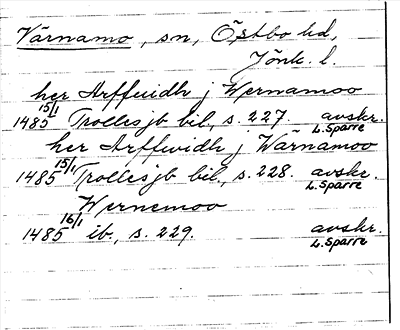 Värnamo, sn, Östbo hd,
Jönk. l.
her Arffuidh j Wernamoo
1485 15/1 Trolles jb bil, s. 227. avskr. L. Sparre
her Arffwidh j Wärnamoo
1485 15/1 Trolles jb bil, s. 228. avskr. L. Sparre
Wernemoo
1485 16/1 ib, s. 229. avskr. L. Sparre